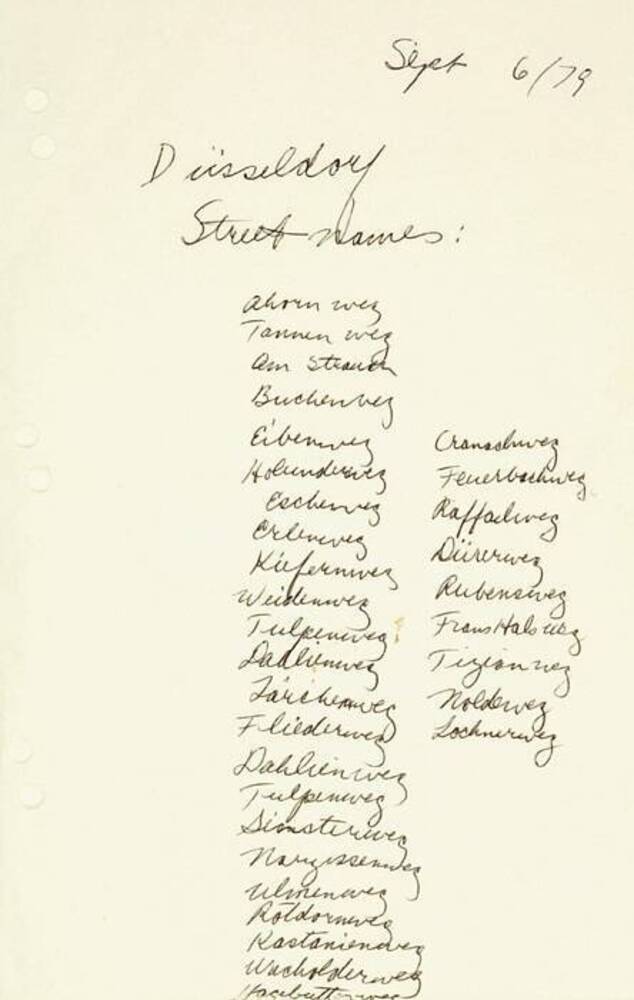 Sept 6/79
Düsseldorf
Street names:
Ahornweg
Tannenweg
Am Strauch
Buchenweg
Eibenweg
Holunderweg
Eschenweg
Erlenweg
Kiefernweg
Weidenweg
Tulpenweg
Dahlienweg
Lärchenweg
Fliederweg
Dahlienweg
Tulpenweg
Narzissenweg
Ulmenweg
Rotdornweg
Kastanienweg
Wacholderweg
Hagebuttenweg
Cranachweg
Feuerbachweg
Raffaelweg
Dürerweg
Rubensweg
Frans Hals weg
Tizianweg
Noldeweg
Lochnerweg